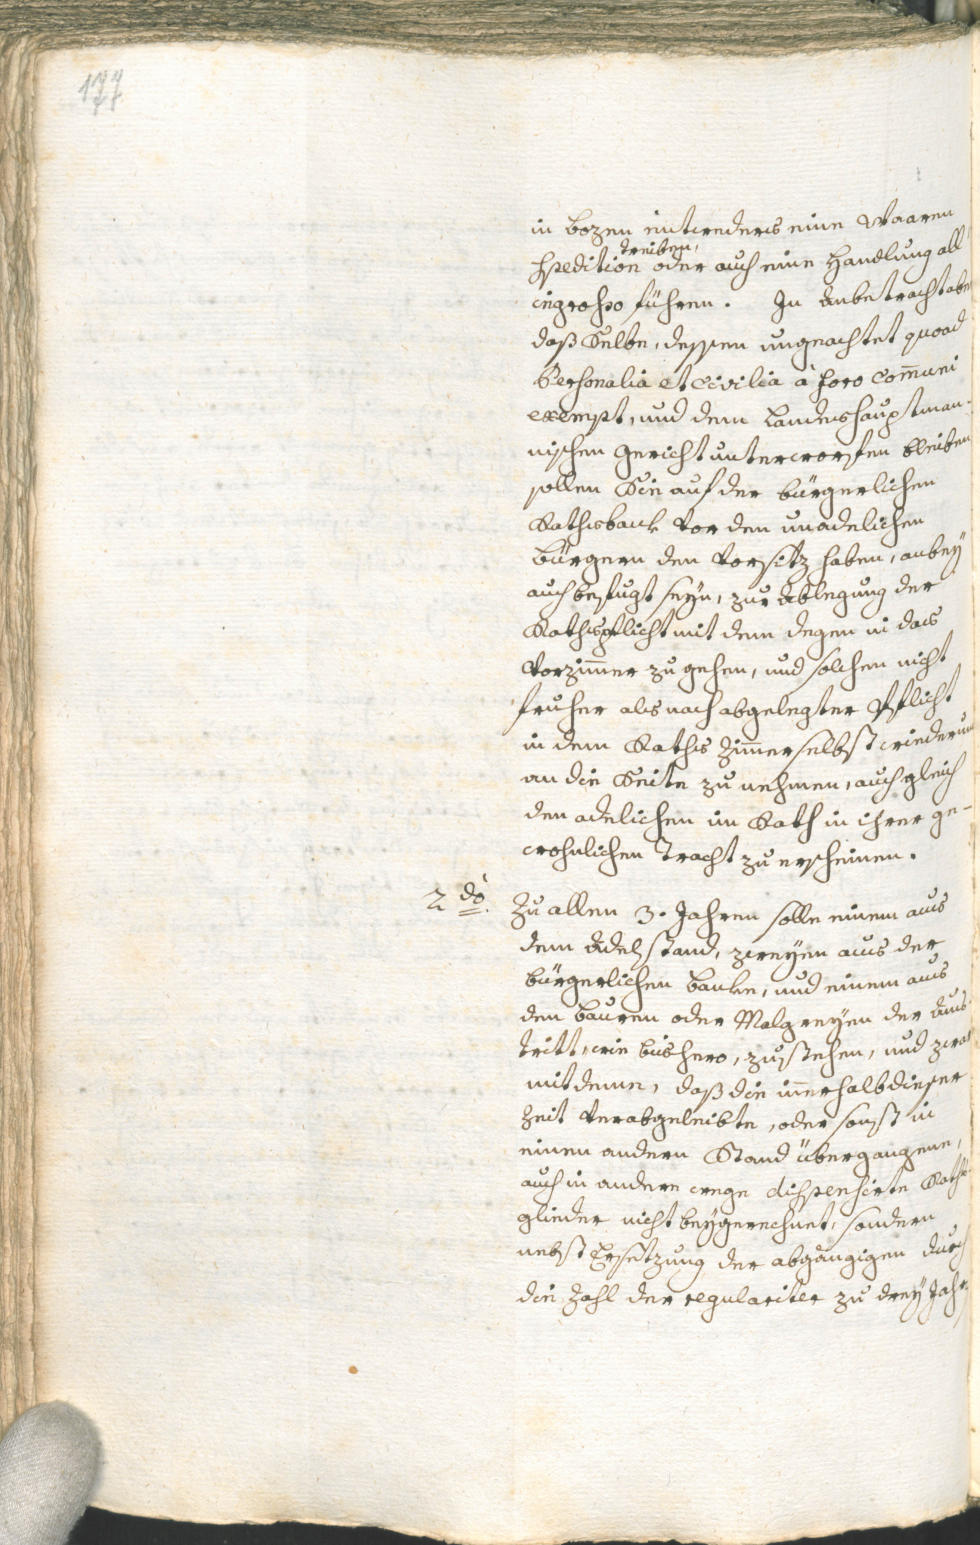 177
in Bozen eintweders eine Waaren
treiben,
Spedition oder auch eine Handlung all
ingrosso führen. In Anbetracht aber
daß Selbe, dessen ungeachtet quoad
Personalia et Civilia à foro Com̄uni
exempt, und dem Landeshauptman-
nischen Gericht unterworfen bleiben
sollen Sie auf der bürgerlichen
Rathsbank vor den unadelichen
Bürgern den Vorsitz haben, anbey
auch befugt seyn, zur Ablegung der
Rathspflicht mit dem Degen in das
Vorzim̄er zu gehen, und solchen nicht
fruher als nach abgelegter Pflicht
in dem Raths Zim̄er selbst wiederum
an die Seite zu nehmen, auch gleich
den adelichen im Rath in ihrer ge-
wohnlichen Tracht zu erscheinen.
2do. Zu allen 3. Jahren solle einem aus
dem Adelstand, zweyen aus der
bürgerlichen Banke, und einem aus
den Bauren oder Malgreyen der Aus-
tritt, wie bishero, zustehen, und zwar
mit deme, daß die in̄erhalb dieser
Zeit verabgeleibte, oder sonst in
einen andern Stand übergangene,
auch in andere wege dispensirte Raths-
glieder nicht beygerechnet, sondern
nebst Ersetzung der abgängigen durch
die Zahl der regulariter zu drey Jahr